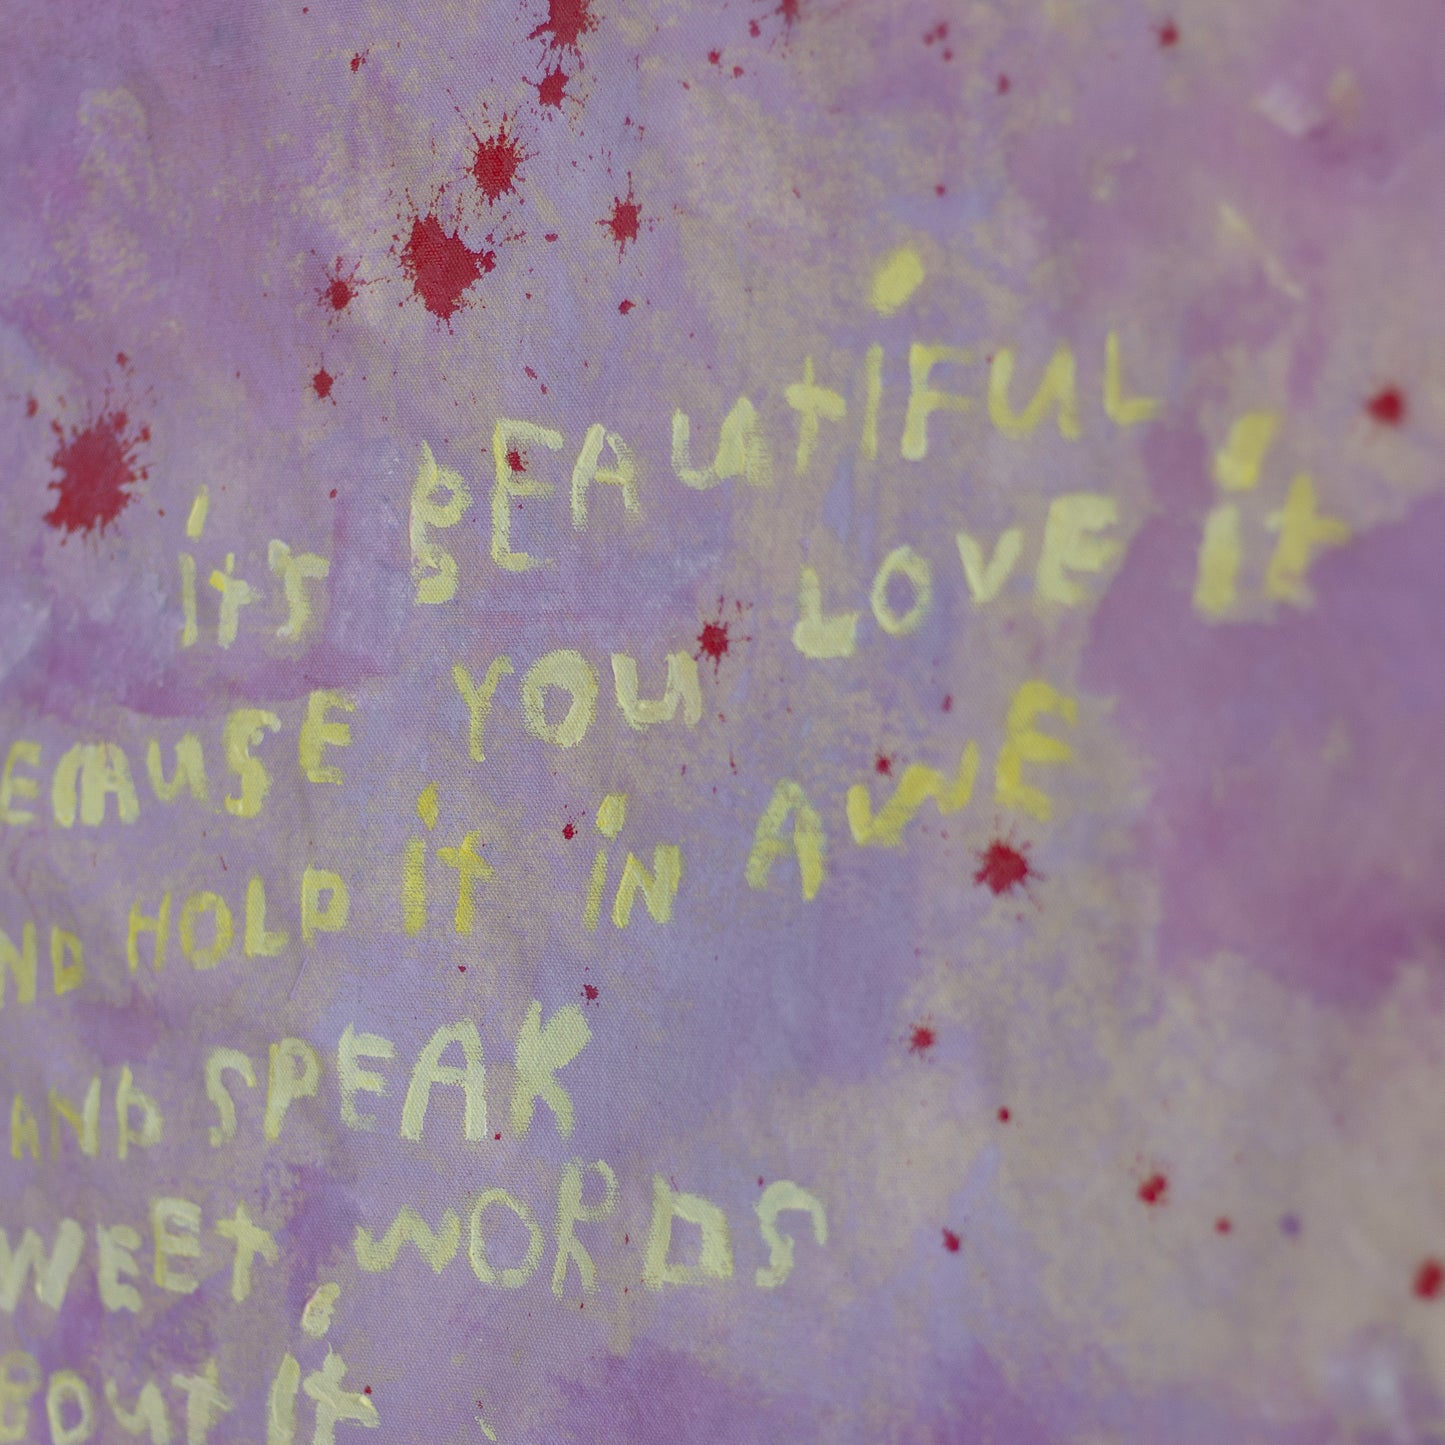 its BEAUtiFUL
EMUSE YOU LOVE it
ND HOLD it iN AWE
AND SPEAK
WEEt WORDS
BOUt it